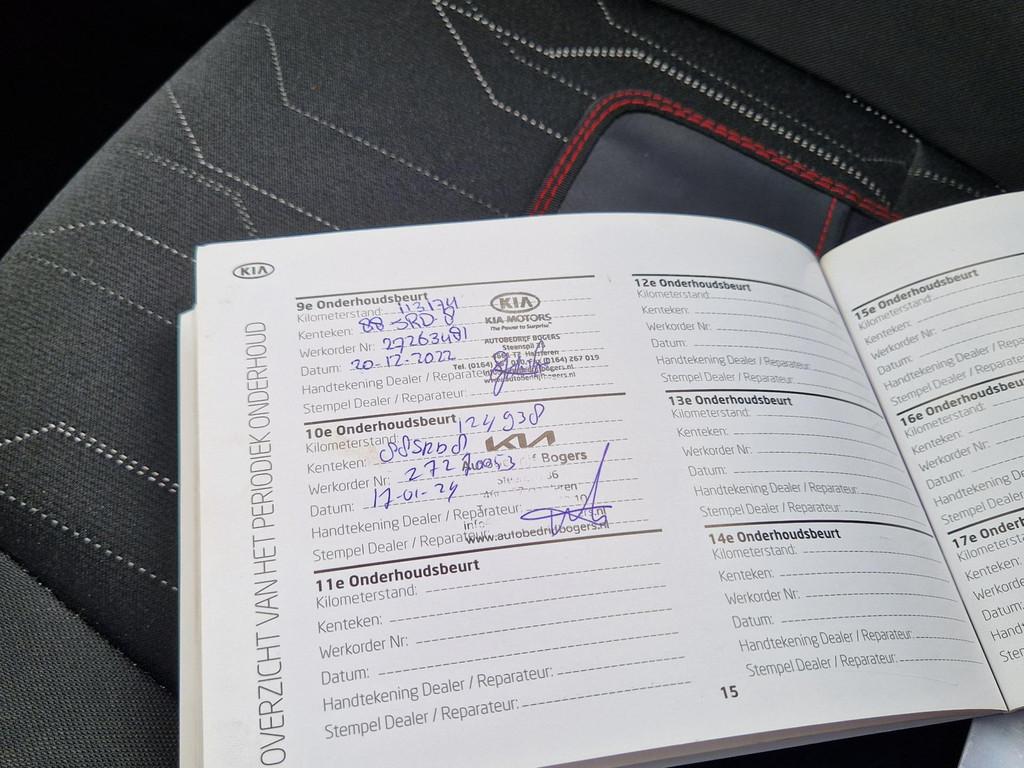 KIA
OVERZICHT VAN HET PERIODIEK ONDERHOUD
9e Onderhoudsbeurt
Kilometerstand: 113174
Kenteken: 88-SRD-8
Werkorder Nr: 27263481
Datum: 20-12-2022
Handtekening Dealer / Reparateur:
Stempel Dealer / Reparateur:
KIA
KIA MOTORS
The Power to Surprise
AUTOBEDRIJF BOGERS
Steenspil
Halsteren
Tel. (0164) (0164) 267 019
10e Onderhoudsbeurt
Kilometerstand: 124938
Kenteken: 88SRD8
Werkorder Nr: 2727
Datum: 17-01-24
Handtekening Dealer / Reparateur:
Stempel Dealer / Reparateur:
KIA
Bogers
www.autobedrijfbogers.nl
11e Onderhoudsbeurt
Kilometerstand:
Kenteken:
Werkorder Nr:
Datum:
Handtekening Dealer / Reparateur:
Stempel Dealer / Reparateur:
12e Onderhoudsbeurt
Kilometerstand:
Kenteken:
Werkorder Nr:
Datum:
Handtekening Dealer / Reparateur:
Stempel Dealer / Reparateur:
13e Onderhoudsbeurt
Kilometerstand:
Kenteken:
Werkorder Nr:
Datum:
Handtekening Dealer / Reparateur:
Stempel Dealer / Reparateur:
14e Onderhoudsbeurt
Kilometerstand:
Kenteken:
Werkorder Nr:
Datum:
Handtekening Dealer / Reparateur:
Stempel Dealer / Reparateur:
15
15e Onderhoudsbeurt
Kilometerstand:
Kenteken:
Werkorder Nr:
Datum:
Handtekening Dealer / Reparateur:
Stempel Dealer / Reparateur:
16e Onderhoudsbeurt
Kilometerstand:
Kenteken:
Werkorder Nr:
Datum:
Handtekening Dealer
Stempel Dealer / R
17e Onderh
Kilometersta
Kenteken:
Werkord
Datum:
Handt
Ster